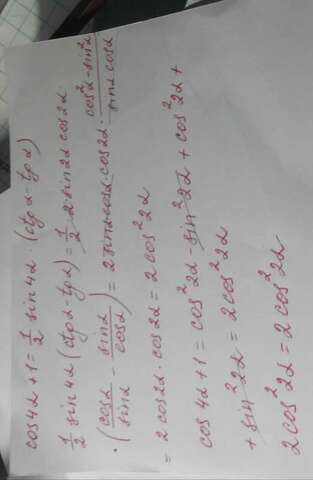 cos4α+1=1/2 sin4α·(ctgα-tgα)
1/2 sin4α(ctgα-tgα)=1/2·2·sin2α cos2α·
·(cosα/sinα - sinα/cosα)=2sinα·cosα·cos2α·(cos²α-sin²α)/(sinα cosα)
=2cos2α·cos2α=2cos²2α
cos4α+1=cos²2α-sin²2α+cos²2α+
+sin²2α=2cos²2α
2cos²2α=2cos²2α